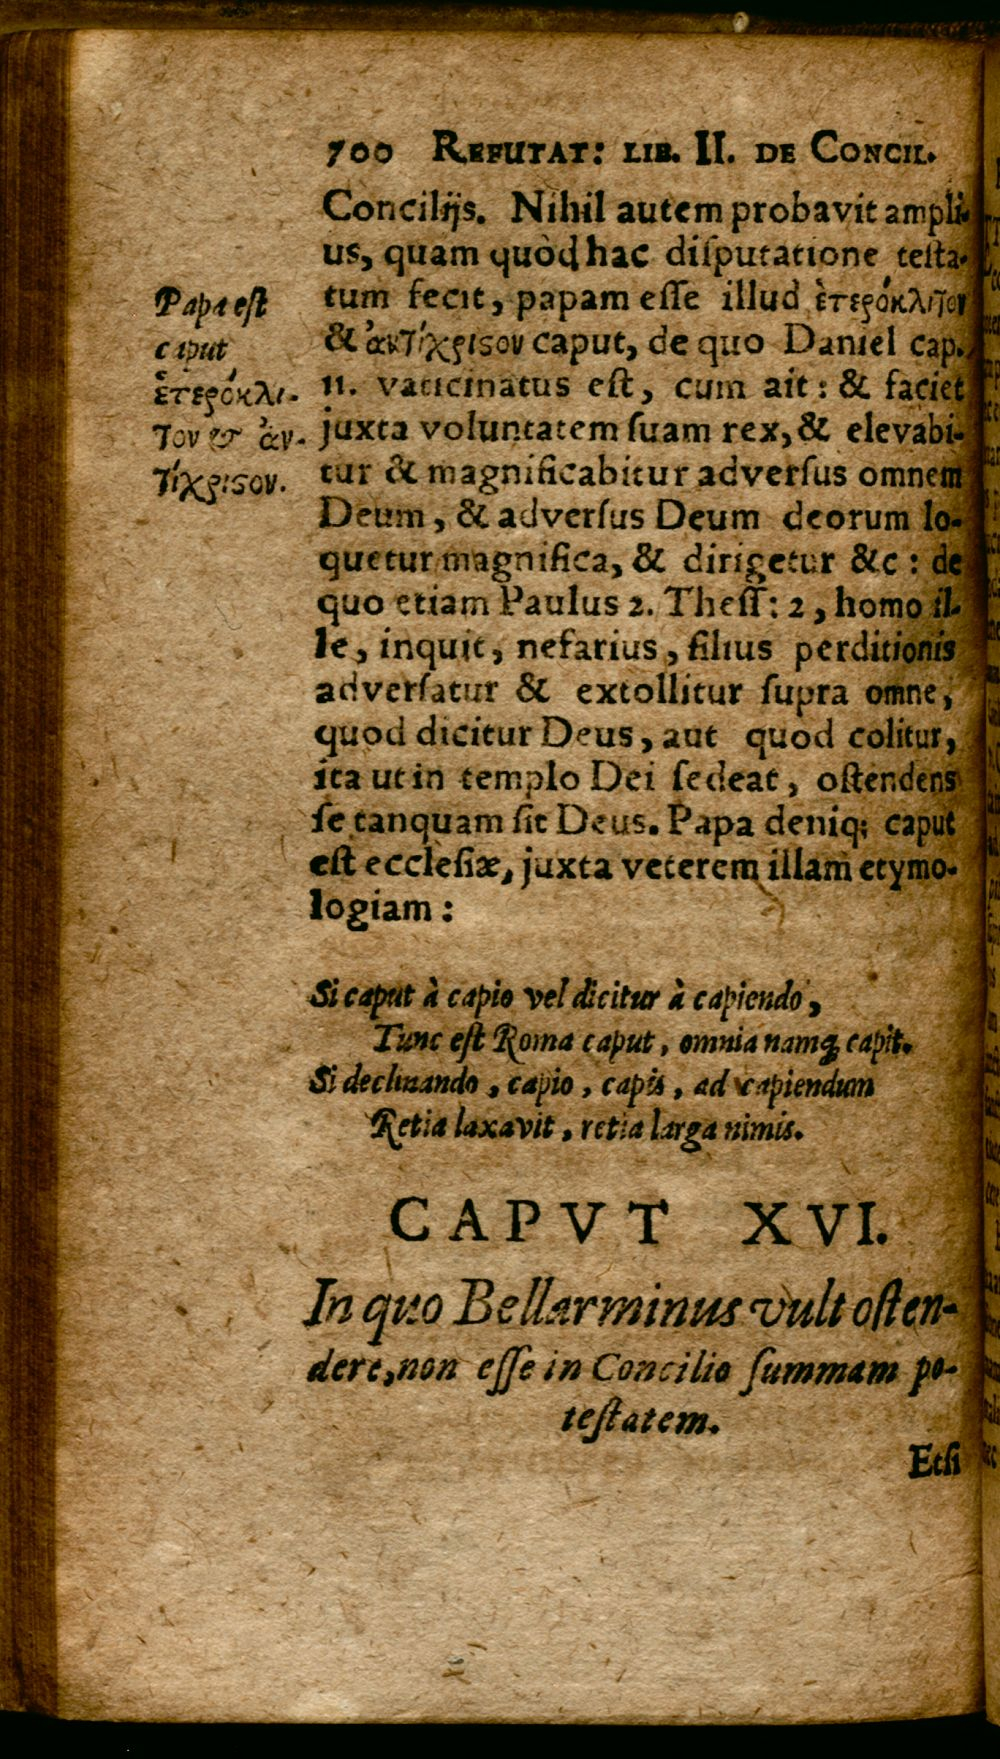 700 REFUTAT: LIB. II. DE CONCIL.
Concilijs. Nihil autem probavit ampli-
us, quam quòd hac diſputatione teſta-
tum fecit, papam eſſe illud ἑτερόκλιτον
& ἀντίχριϛον caput, de quo Daniel cap.
11. vaticinatus eſt, cum ait: & faciet
juxta voluntatem ſuam rex, & elevabi-
tur & magnificabitur adverſus omnem
Deum, & adverſus Deum deorum lo-
quetur magnifica, & dirigetur &c: de
quo etiam Paulus 2. Theſſ: 2, homo il-
le, inquit, nefarius, filius perditionis
adverſatur & extollitur ſupra omne,
quod dicitur Deus, aut quod colitur,
ita ut in templo Dei ſedeat, oſtendens
ſe tanquam ſit Deus. Papa deniq; caput
eſt eccleſiæ, juxta veterem illam etymo-
logiam:
Papa eſt
caput
ἑτερόκλι-
τον & ἀν-
τίχριϛον.
Si caput à capio vel dicitur à capiendo,
Tunc eſt Roma caput, omnia namq; capit.
Si declinando, capio, capis, ad capiendum
Retia laxavit, retia larga nimis.
CAPVT XVI.
In quo Bellarminus vult oſten-
dere, non eſſe in Concilio ſummam po-
teſtatem.
Etſi